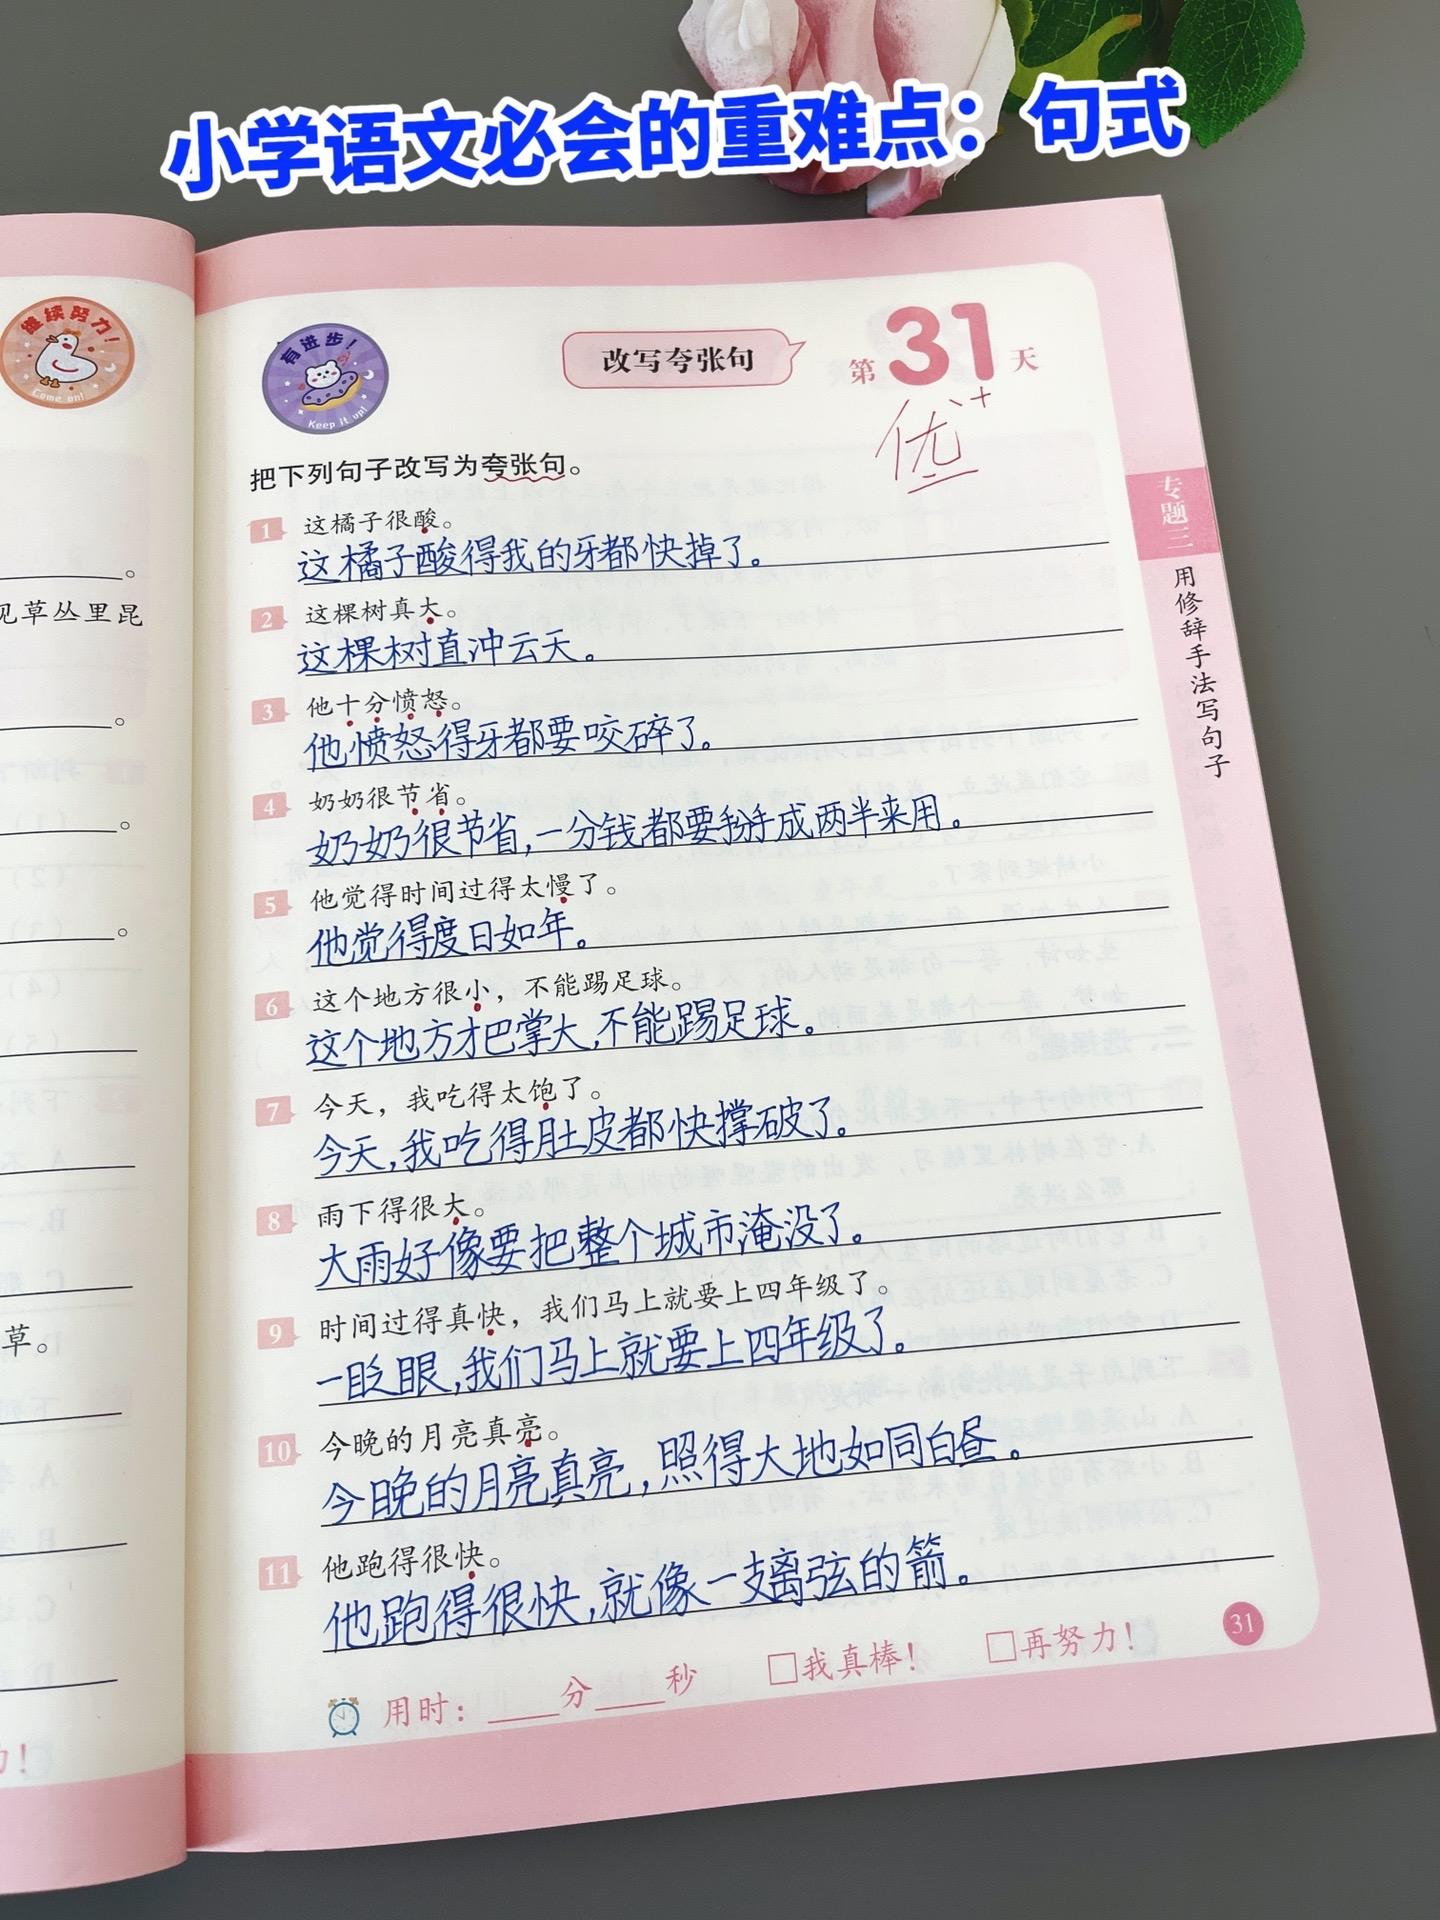 小学语文必会的重难点：句式
继续努力！
Come on!
有进步！
Keep it up!
改写夸张句
第31天
优+
把下列句子改写为夸张句。
1 这橘子很酸。
这橘子酸得我的牙都快掉了。
2 这棵树真大。
这棵树直冲云天。
3 他十分愤怒。
他愤怒得牙都要咬碎了。
4 奶奶很节省。
奶奶很节省,一分钱都要掰成两半来用。
5 他觉得时间过得太慢了。
他觉得度日如年。
6 这个地方很小，不能踢足球。
这个地方才巴掌大,不能踢足球。
7 今天，我吃得太饱了。
今天,我吃得肚皮都快撑破了。
8 雨下得很大。
大雨好像要把整个城市淹没了。
9 时间过得真快，我们马上就要上四年级了。
一眨眼,我们马上就要上四年级了。
10 今晚的月亮真亮。
今晚的月亮真亮,照得大地如同白昼。
11 他跑得很快。
他跑得很快,就像一支离弦的箭。
用时：____分____秒 □我真棒！ □再努力！
31
专题三
用修辞手法写句子
。
见草丛里昆
。
。
。
草。
力！